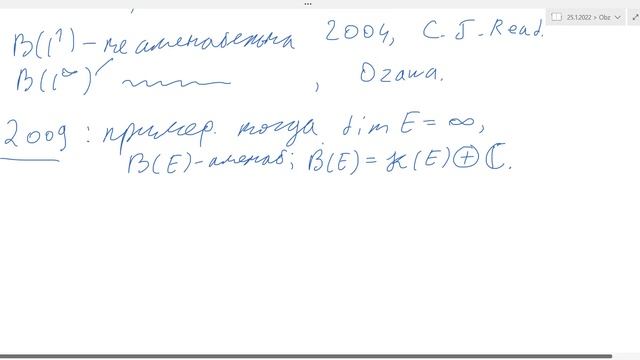 25.1.2022 > Obz
B(l¹) - не аменабельна 2004, C. J. Read.
B(l^∞) , Ozawa.
2009 : пример. когда dim E = ∞,
B(E) - аменаб; B(E) = K(E) ⊕ ℂ.